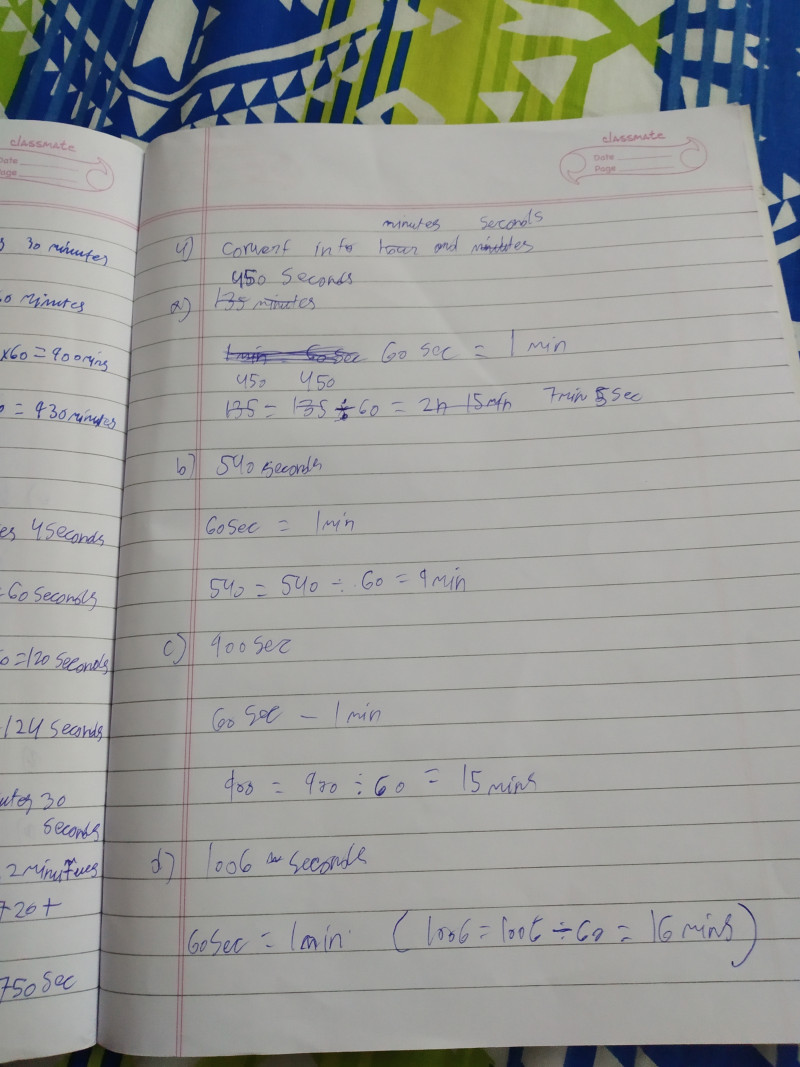 classmate
Date
Page
30 minutes
0 minutes
x60 = 900 mins
= 930 minutes
es 4 seconds
= 60 seconds
0 = 120 seconds
124 seconds
utes 30
seconds
720 +
750 sec
classmate
Date
Page
minutes seconds
4) convert into hour and minutes
450 seconds
a) 135 minutes
1 min = 60 sec 60 sec = 1 min
450 450
135 = 135 ÷ 60 = 2h 15 min 7 min 5 sec
b) 540 seconds
60 sec = 1 min
540 = 540 ÷ 60 = 9 min
c) 900 sec
60 sec - 1 min
900 = 900 ÷ 60 = 15 mins
d) 1006 seconds
60 sec = 1 min (1006 = 1006 ÷ 60 = 16 mins)